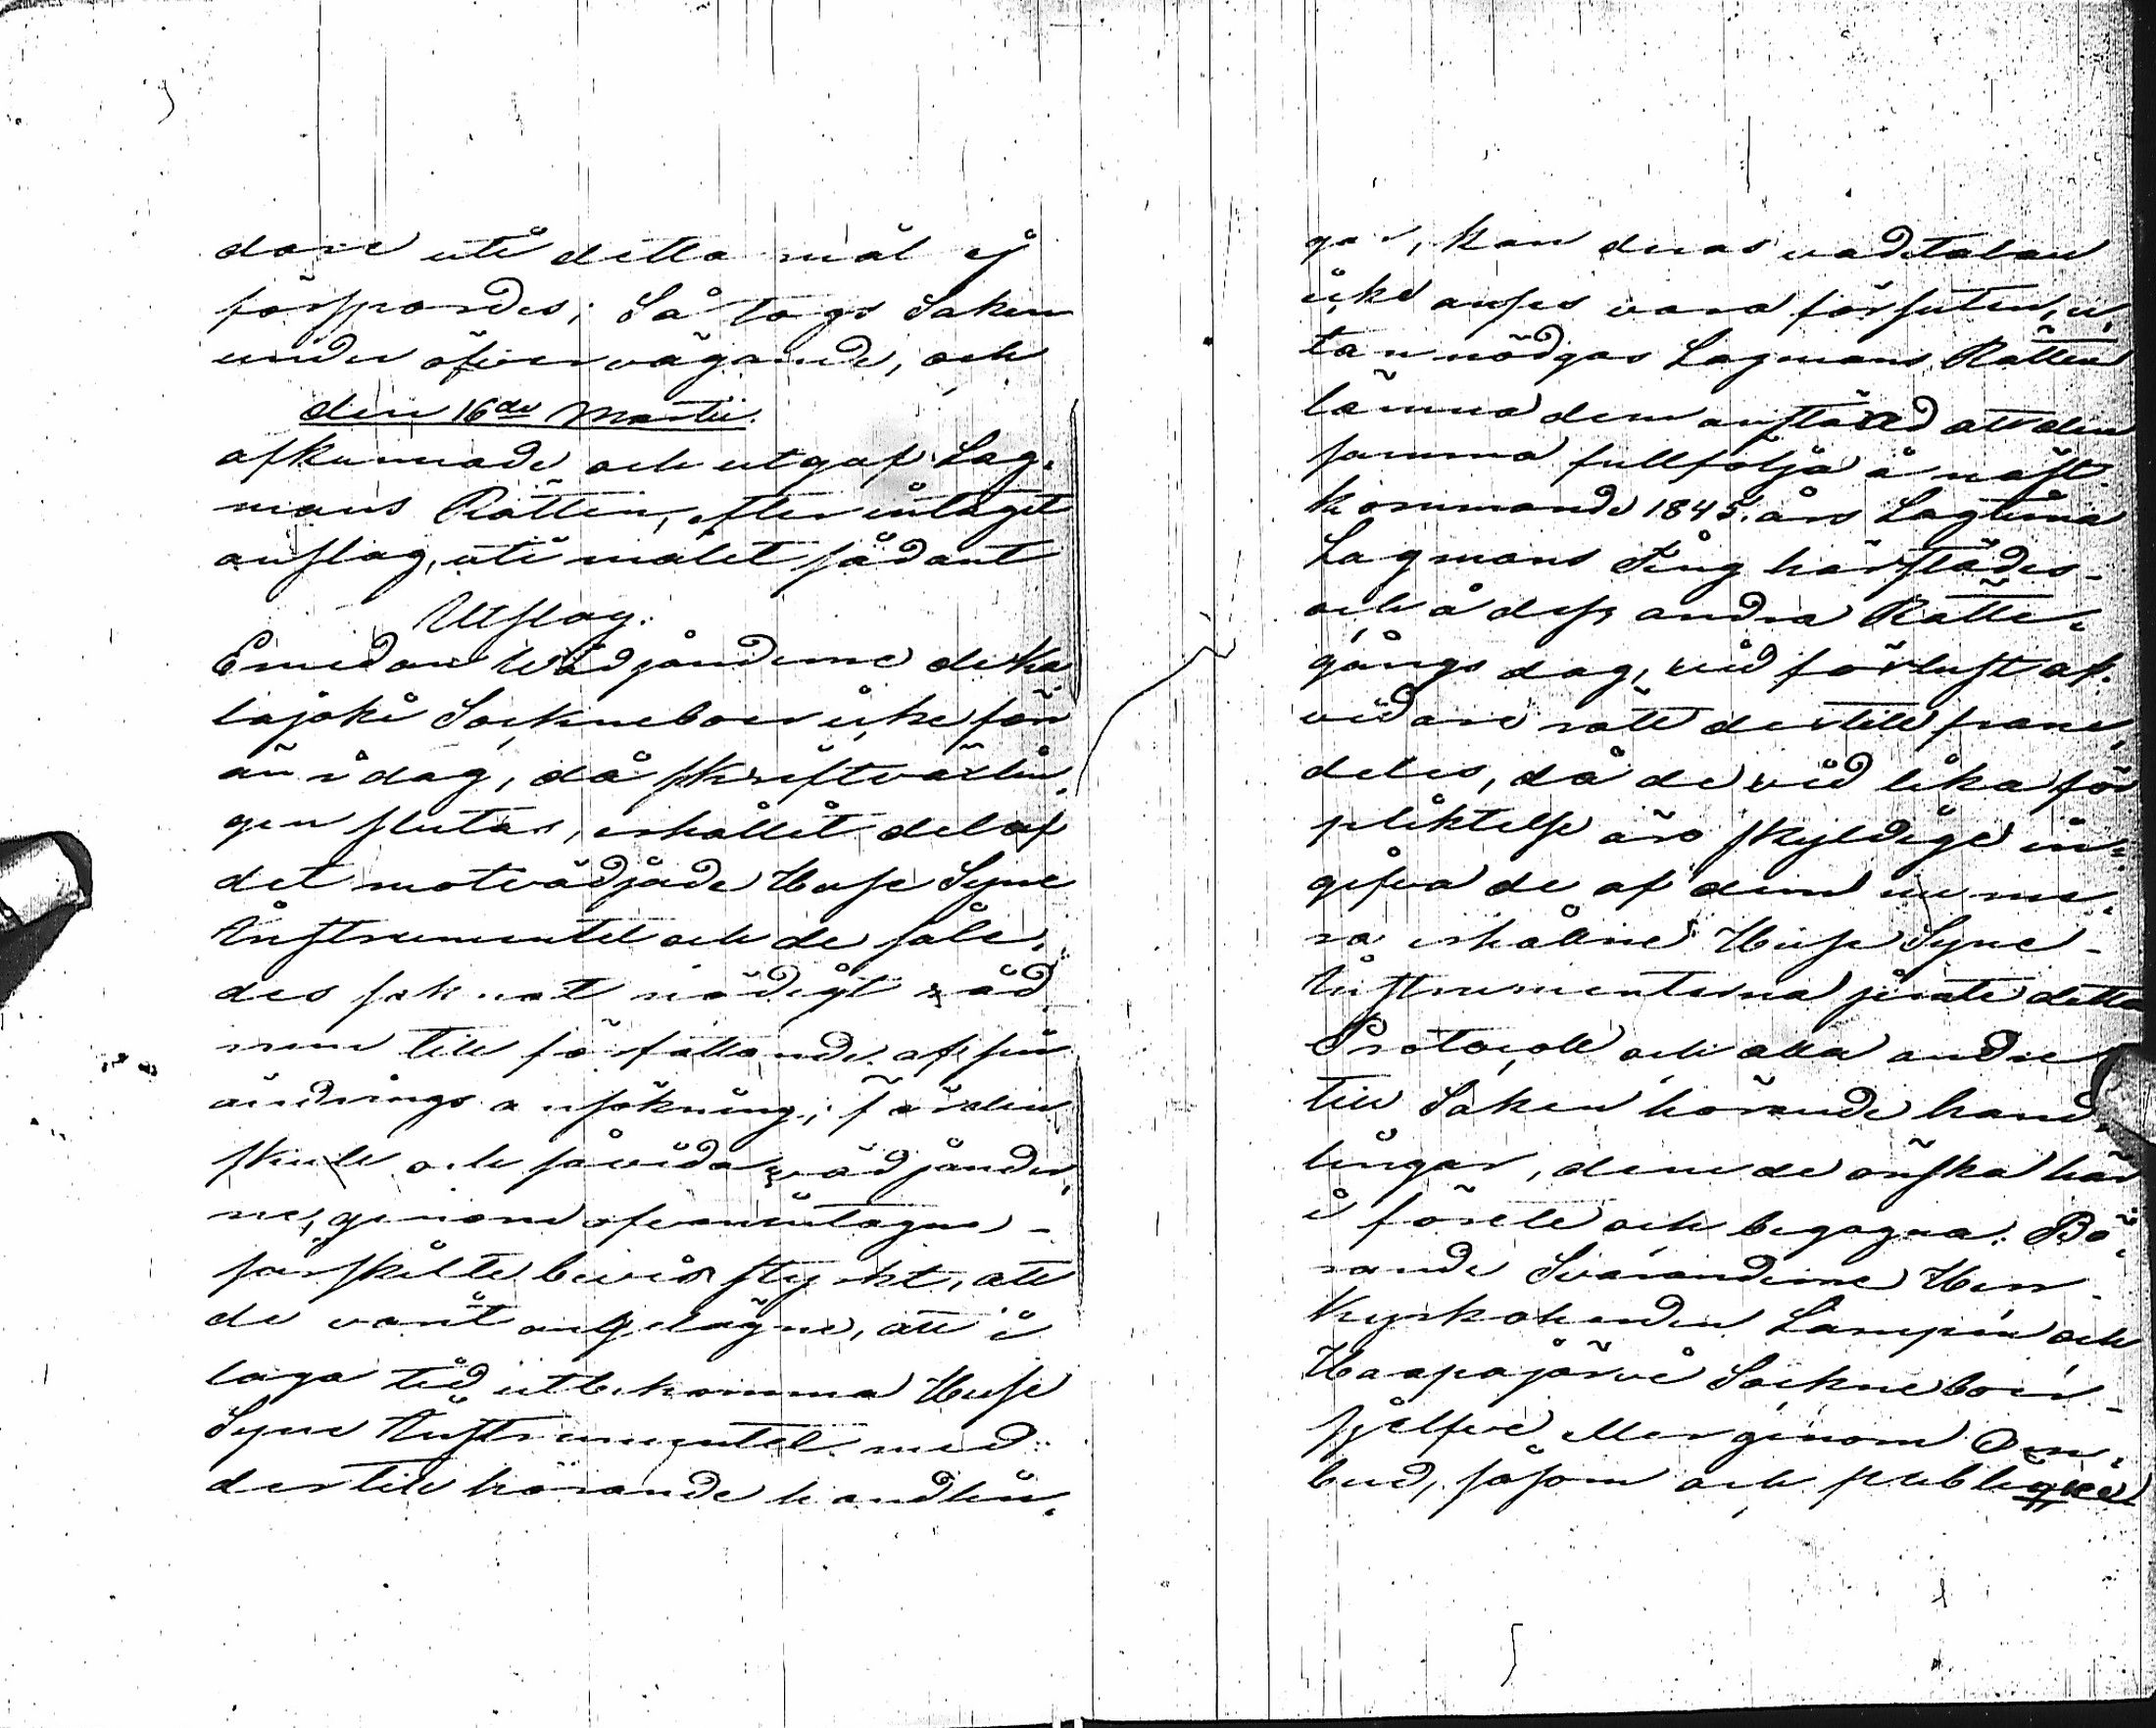 dare uti detta mål ej
förspordes; Så togs Saken
under öfvervägande, och
den 16de Martii.
afkunnade och utgaf Lag-
mans Rätten, efter intaget
anslag, uti målet sådant
Utslag.
Emedan Vädjanderne de Ka-
lajoki Sockneboer icke förr
än i dag, då skriftvexlin-
gen slutas, erhållit del af
det motvädjade Huse Syne
Instrumentet och de såle-
des saknat nödigt råd-
rum till författande af sin
ändrings ansökning; för den
skull och såvida vädjander-
ne, genom ofvanintagne
särskilte bevis styrkt, att
de varit angelägne, att i
laga tid utbekomma Huse
Syne Instrumentet med
dertill hörande handlin-
gar, kan deras vadetalan
icke anses vara försuten, u-
tan nödgas Lagmans Rätten
lämna dem anstånd att den-
samma fullfölja å näst-
kommande 1845. års Lagtima
Lagmans Ting härstädes
och å dess andra Rätte-
gångs dag, vid förlust af
vidare rätt dertill fram-
deles, då de vid lika för-
pliktelse äro skyldige in-
gifva de af dem nu me-
ra erhållne Huse Syne
Instrumenterna jemte detta
Protocoll och alla andre
till Saken hörande hand-
lingar, dem de önska här-
i förete och begagna. Bö-
rande Svaranderne Herr
Kyrkoherden Lampén och
Haapajärvi Sockneboer
sjelfve eller genom Om-
bud, såsom och publique